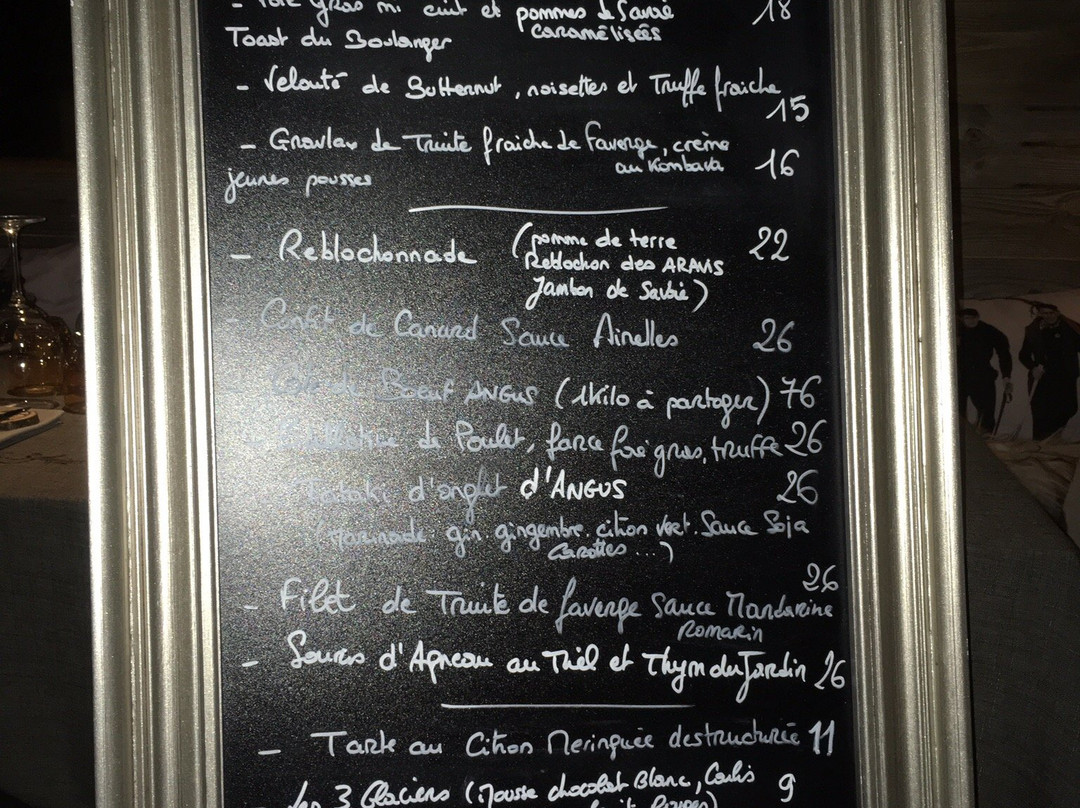 - Foie gras mi cuit et pommes de Savoie 18
caramélisées
Toast du Boulanger
- Velouté de Butternut, noisettes et Truffe fraiche
15
- Gravlax de Truite fraiche de Faverge, crème
au Kombava 16
jeunes pousses
- Reblochonnade (pomme de terre 22
Reblochon des ARAVIS
Jambon de Savoie)
- Confit de Canard Sauce Airelles 26
Boeuf ANGUS (1kilo à partager) 76
de Poulet, farce foie gras, truffe 26
Tataki d'onglet d'ANGUS 26
(Marinade: gin. gingembre. citron vert. Sauce Soja
Carottes...)
26
- Filet de Truite de faverge Sauce Mandarine
Romarin
- Souris d'Agneau au Miel et Thym du Jardin 26
- Tarte au Citron Meringuée destructurée 11
Les 3 Glaciers (Mousse chocolat Blanc, Coulis
9